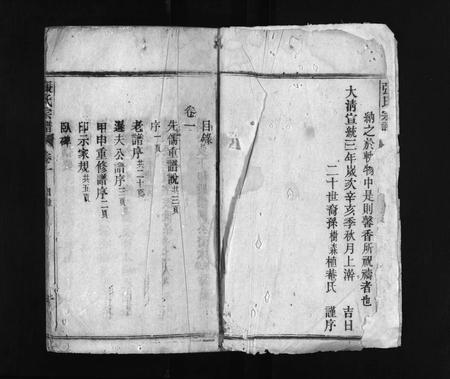 張氏宗譜
納之於軌物中是則馨香所視禱者也
大清宣統三年歲次辛亥季秋月上澣 吉日
二十世裔孫樹森植菴氏 謹序
目錄
卷一
先儒重譜說共三頁
序一頁
老譜序共二十頁
遜夫公譜序三頁
甲申重修譜序二頁
印示家規共五頁
臥碑
張氏宗譜 卷一